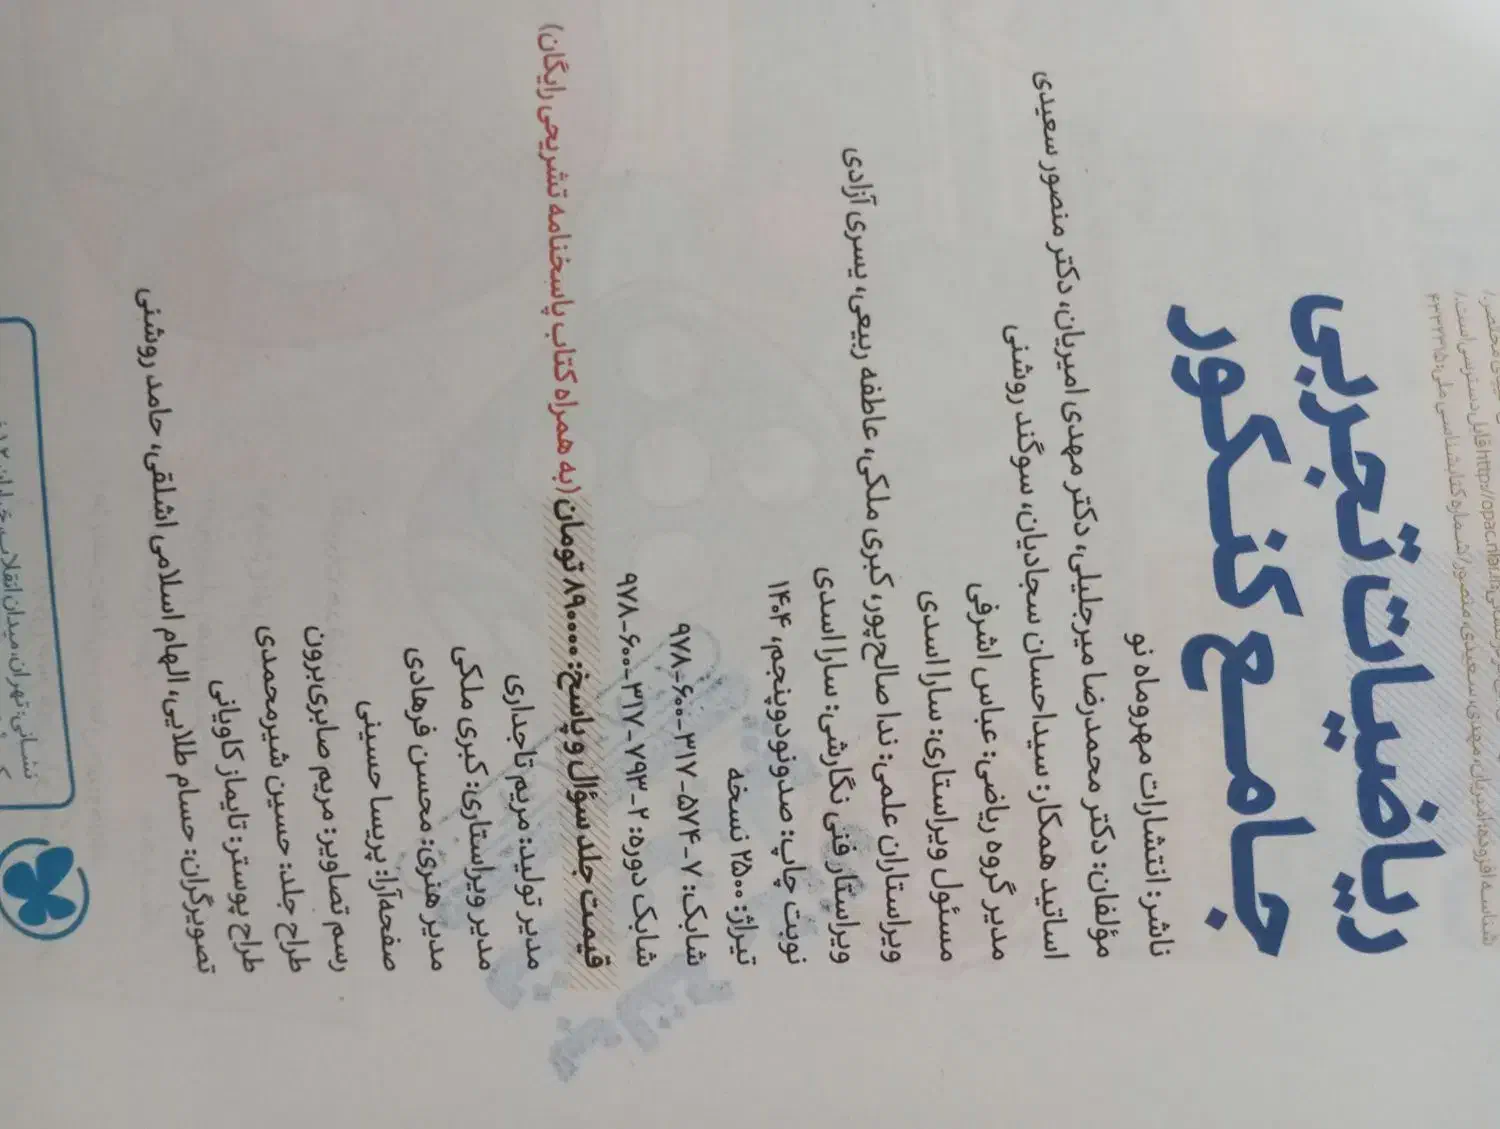 http://opac.nlai.ir قابل دسترسی است.
شناسه افزوده: امیریان، مهدی، سعیدی، منصور / شماره کتابشناسی ملی: ۴۴۳۲۳۱۵
ریاضیات تجربی
جامع کنکور
ناشر: انتشارات مهروماه نو
مؤلفان: دکتر محمدرضا میرجلیلی، دکتر مهدی امیریان، دکتر منصور سعیدی
اساتید همکار: سیداحسان سجادیان، سوگند روشنی
مدیر گروه ریاضی: عباس اشرفی
مسئول ویراستاری: سارا اسدی
ویراستاران علمی: ندا صالح‌پور، کبری ملکی، عاطفه ربیعی، یسری آزادی
ویراستار فنی نگارشی: سارا اسدی
نوبت چاپ: صدونودوپنجم، ۱۴۰۴
تیراژ: ۲۵۰۰ نسخه
شابک: ۷-۵۷۴-۳۱۷-۶۰۰-۹۷۸
شابک دوره: ۲-۷۹۳-۳۱۷-۶۰۰-۹۷۸
قیمت جلد سؤال و پاسخ: ۸۹۰۰۰۰ تومان (به همراه کتاب پاسخنامه تشریحی رایگان)
مدیر تولید: مریم تاجداری
مدیر ویراستاری: کبری ملکی
مدیر هنری: محسن فرهادی
صفحه‌آرا: پریسا حسینی
رسم تصاویر: مریم صابری‌برون
طراح جلد: حسین شیرمحمدی
طراح پوستر: تایماز کاویانی
تصویرگران: حسام طلایی، الهام اسلامی اشلقی، حامد روشنی
نشانی: تهران، میدان انقلاب، خیابان ۱۲